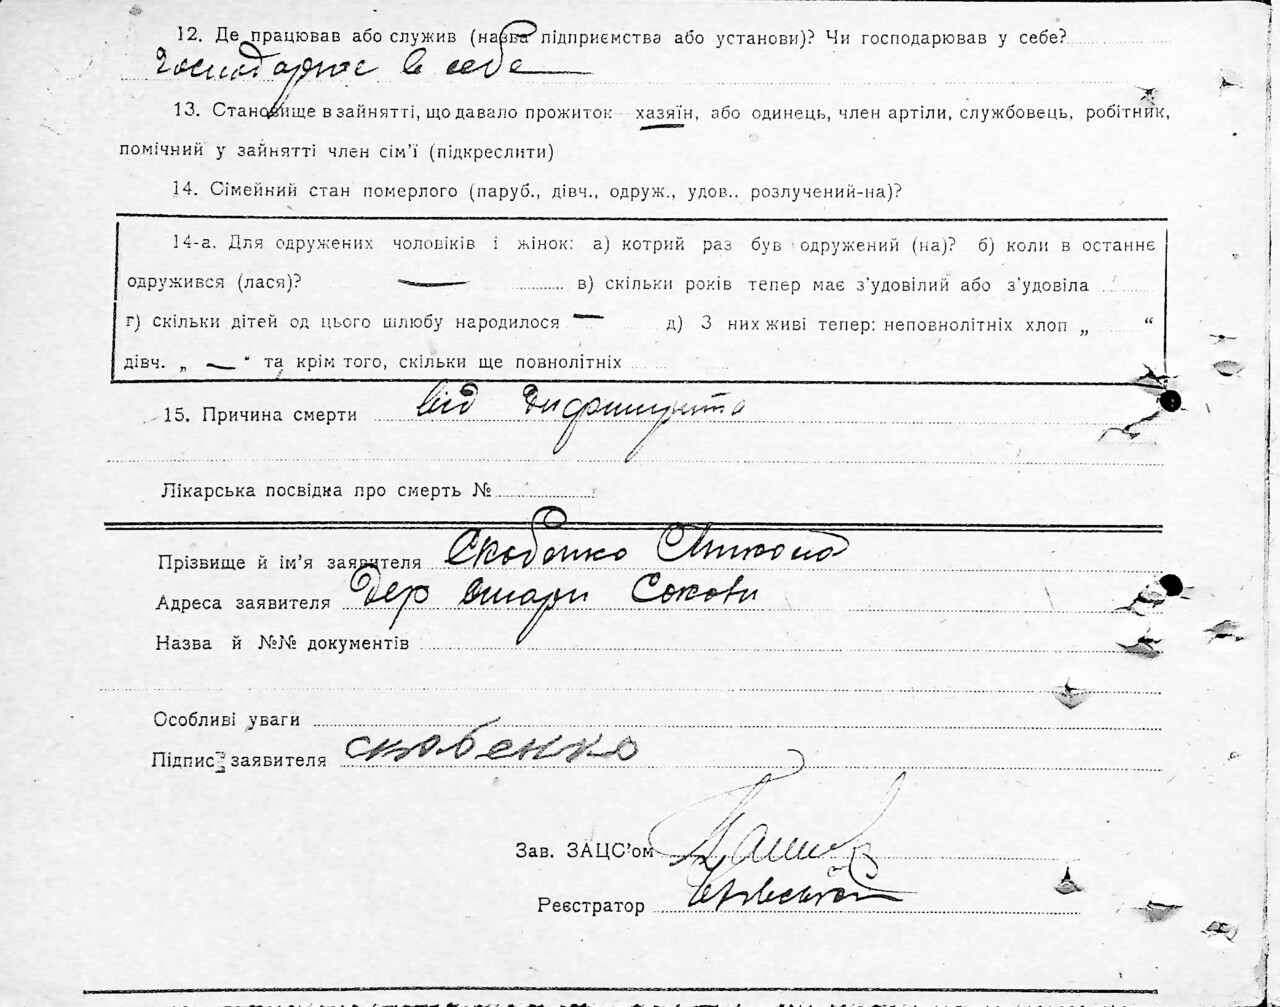 12. Де працював або служив (назва підприємства або установи)? Чи господарював у себе?
господарює в себе
13. Становище в зайнятті, що давало прожиток — хазяїн, або одинець, член артіли, службовець, робітник,
помічний у зайнятті член сім'ї (підкреслити)
14. Сімейний стан померлого (паруб., дівч., одруж., удов., розлучений-на)?
14-а. Для одружених чоловіків і жінок: а) котрий раз був одружений (на)? б) коли в останнє
одружився (лася)? — в) скільки років тепер має з'удовілий або з'удовіла
г) скільки дітей од цього шлюбу народилося — д) З них живі тепер: неповнолітніх хлоп „ “
дівч. „ — “ та крім того, скільки ще повнолітніх
15. Причина смерти від
Лікарська посвідка про смерть №
Прізвище й ім'я заявителя Скобенко
Адреса заявителя Дер Стари Сокови
Назва й №№ документів
Особливі уваги
Підпис заявителя скобенко
Зав. ЗАЦС'ом
Реєстратор